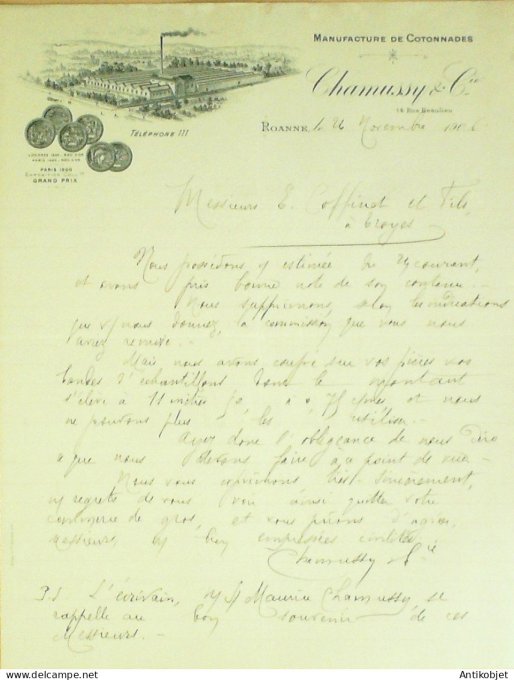 MANUFACTURE DE COTONNADES
Chamussy & Cie
14 Rue Beaulieu
TÉLÉPHONE 111
ROANNE, le 26 Novembre 190
PARIS 1900
GRAND PRIX
Messieurs E. Coffinet et Fils
à Troyes
Nous possédons v/ estimée du 24 courant,
et avons pris bonne note de son contenu.
Nous supprimons, selon les indications
que v/ nous donnez, la commission que vous nous
avez remise.
Mais nous avons coupé sur vos pièces vos
bandes d'échantillons dont le montant
s'élève à 11 et nous
ne pouvons plus les utiliser.
Ayez donc l'obligeance de nous dire
ce que nous devons faire à ce point de vue.
Nous vous exprimons très sincèrement,
n/ regrets de vous voir ainsi quitter votre
de gros, et vous prions d'agréer,
Messieurs, n/ bien empressées civilités.
Chamussy & Cie
P.S. L'écrivain, Maurice Chamussy se
rappelle au bon souvenir de ces
Messieurs.
© Antikobjet